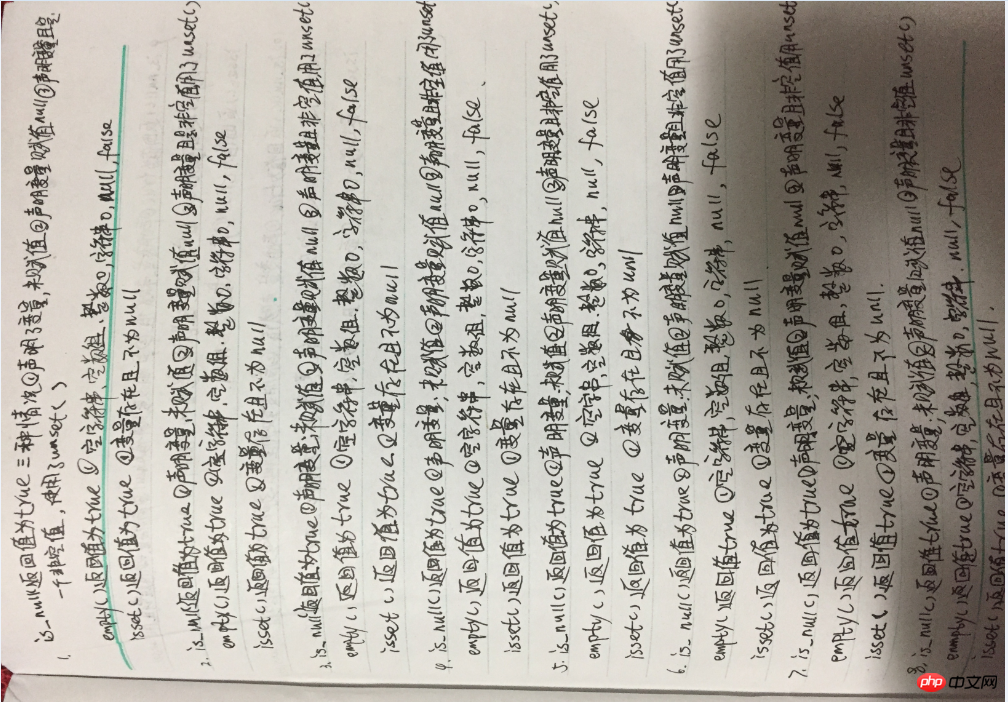 1. is_null返回值为true三种情况①声明了变量,未赋值②声明变量赋值null③声明变量且是
一个非空值,使用了unset()
empty()返回值为true ①空字符串,空数组、整数0,字符串0,null,false
isset()返回值为true ①变量存在且不为null
2. is_null返回值为true①声明变量未赋值②声明变量赋值null③声明变量且是非空值用了unset()
empty()返回值为true ①空字符串,空数组、整数0,字符串0,null,false
isset()返回值为true ①变量存在且不为null
3. is_null返回值为true①声明变量未赋值②声明变量赋值null③声明变量且非空值用了unset()
empty()返回值为true①空字符串,空数组、整数0,字符串0,null,false
isset()返回值为true、①变量存在且不为null
4. is_null()返回值为true①声明变量,未赋值②声明变量赋值null③声明变量且非空值用unset()
empty()返回值为true①空字符串,空数组,整数0,字符串0,null,false、
isset()返回值为true ①变量存在且不为null
5. is_null()返回值为true①声明变量,未赋值②声明变量赋值null③声明变量且非空值用了unset()
empty()返回值为true ①空字串,空数组、整数0,字符串,null,false
isset()返回值为true ①变量存在且不为null
6. is_null()返回值为true①声明变量.未赋值②声明变量赋值null③声明变量且非空值用了unset()
empty()返回值true①空字符串,空数组,整数0,字符串,null,false
isset()返回值为true①变量存在且不为null
7. is_null()返回值为true①声明变量,未赋值②声明变量赋值null③声明变量且非空值用unset
empty()返回值true ①空字符串,空数组,整数0,字符串,null,false
isset()返回值true①变量存在且不为null.
8. is_null()返回值true①声明变量,未赋值②声明变量赋值null③声明变量且非空值unset()
emmpty()返回值true①空字符串,空数组,整数0,字符串,null,false
isset()返回值true 变量存在且不为null.
php中文网